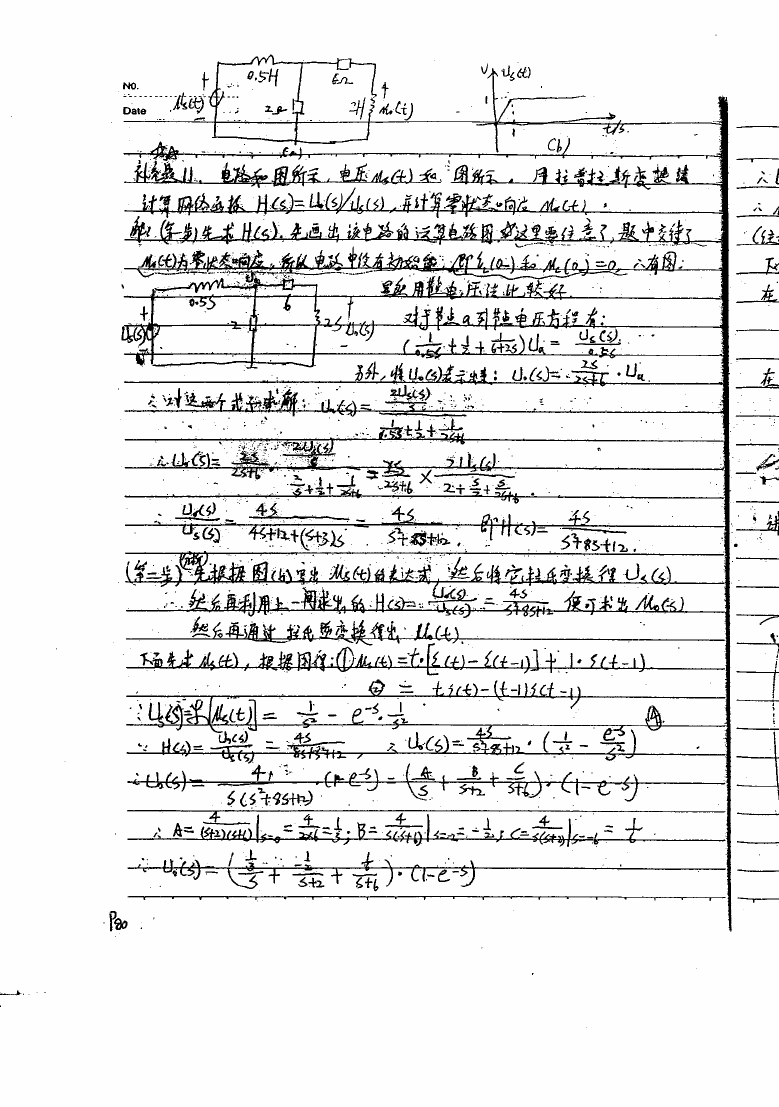 NO.
Date
0.5H
6Ω
2Ω
2H
Us(t)
Uo(t)
(a)
Us(t)
1
1
t/s
(b)
补充题11. 电路如图所示, 电压Us(t)如 图所示. 用拉普拉斯变换
计算网络函数 H(s)=Uo(s)/Us(s), 并计算零状态响应 Uo(t).
解: (第一步)先求H(s), 先画出该电路的运算电路图 这里要注意了, 题中交待了
Uo(t)为零状态响应, 所以电路中没有初始 即 ∴有图:
0.5S
6
2
2S
Us(s)
Uo(s)
用 电压法比较好
对于节点a列节点电压方程有:
(1/0.5S + 1/2 + 1/(6+2S)) Ua = Us(s)/0.5S
另外, 将Uo(s)表示出来: Uo(s) = 2S/(2S+6) · Ua
∴对这两个式子求解:
∴ Uo(s) = 2S/(2S+6) · (2Us(s)/S)/(2/S + 1/2 + 1/(2S+6)) = 2S/(2S+6) × 2Us(s)/(2 + S/2 + S/(2S+6)).
∴ Uo(s)/Us(s) = 4S/(4S+12+(S+3)S) = 4S/(S²+8S+12) 即H(s) = 4S/(S²+8S+12).
(第二步) (分析) 先根据图(b)写出 Us(t)的表达式, 然后将它拉氏变换得 Us(s)
然后再利用上一问求出的 H(s) = Uo(s)/Us(s) = 4S/(S²+8S+12) 便可求出 Uo(s)
然后再通过 拉氏反变换得出 Uo(t)
下面先求 Us(t), 根据图得: ① Us(t) = t·[ε(t)-ε(t-1)] + 1·ε(t-1)
② = tε(t)-(t-1)ε(t-1)
∴ Us(s)=ℒ[Us(t)] = 1/S² - e^-s · 1/S²
④
∵ H(s) = Uo(s)/Us(s) = 4S/(8S+S²+12), ∴ Uo(s) = 4S/(S²+8S+12) · (1/S² - e^-s/S²)
∴ Uo(s) = 4/(S(S²+8S+12)) · (1-e^-s) = (A/S + B/(S+2) + C/(S+6)) · (1-e^-s)
∴ A = 4/((S+2)(S+6))|s=0 = 4/(2×6) = 1/3; B = 4/(S(S+6))|s=-2 = -1/2; C = 4/(S(S+2))|s=-6 = 1/6
∴ Uo(s) = ((1/3)/S + (-1/2)/(S+2) + (1/6)/(S+6)) · (1-e^-s)
P80